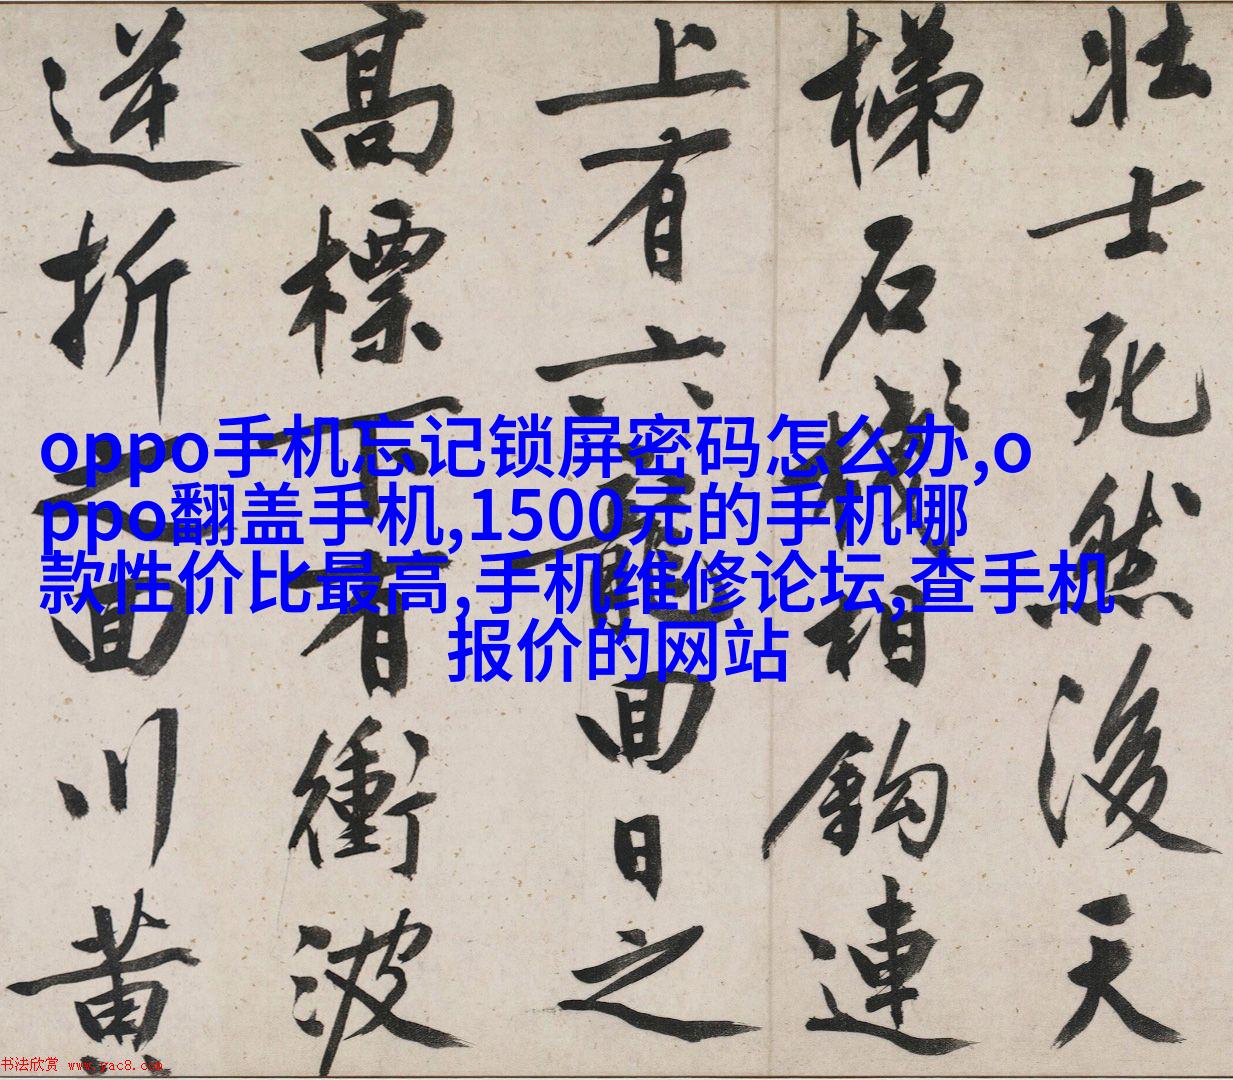 壮士死然後天
梯石棧相鈎連
上有六龍回日之
高標下有衝波
逆折之回川黄
oppo手机忘记锁屏密码怎么办,o
ppo翻盖手机,1500元的手机哪
款性价比最高,手机维修论坛,查手机
报价的网站
书法欣赏 www.yac8.com